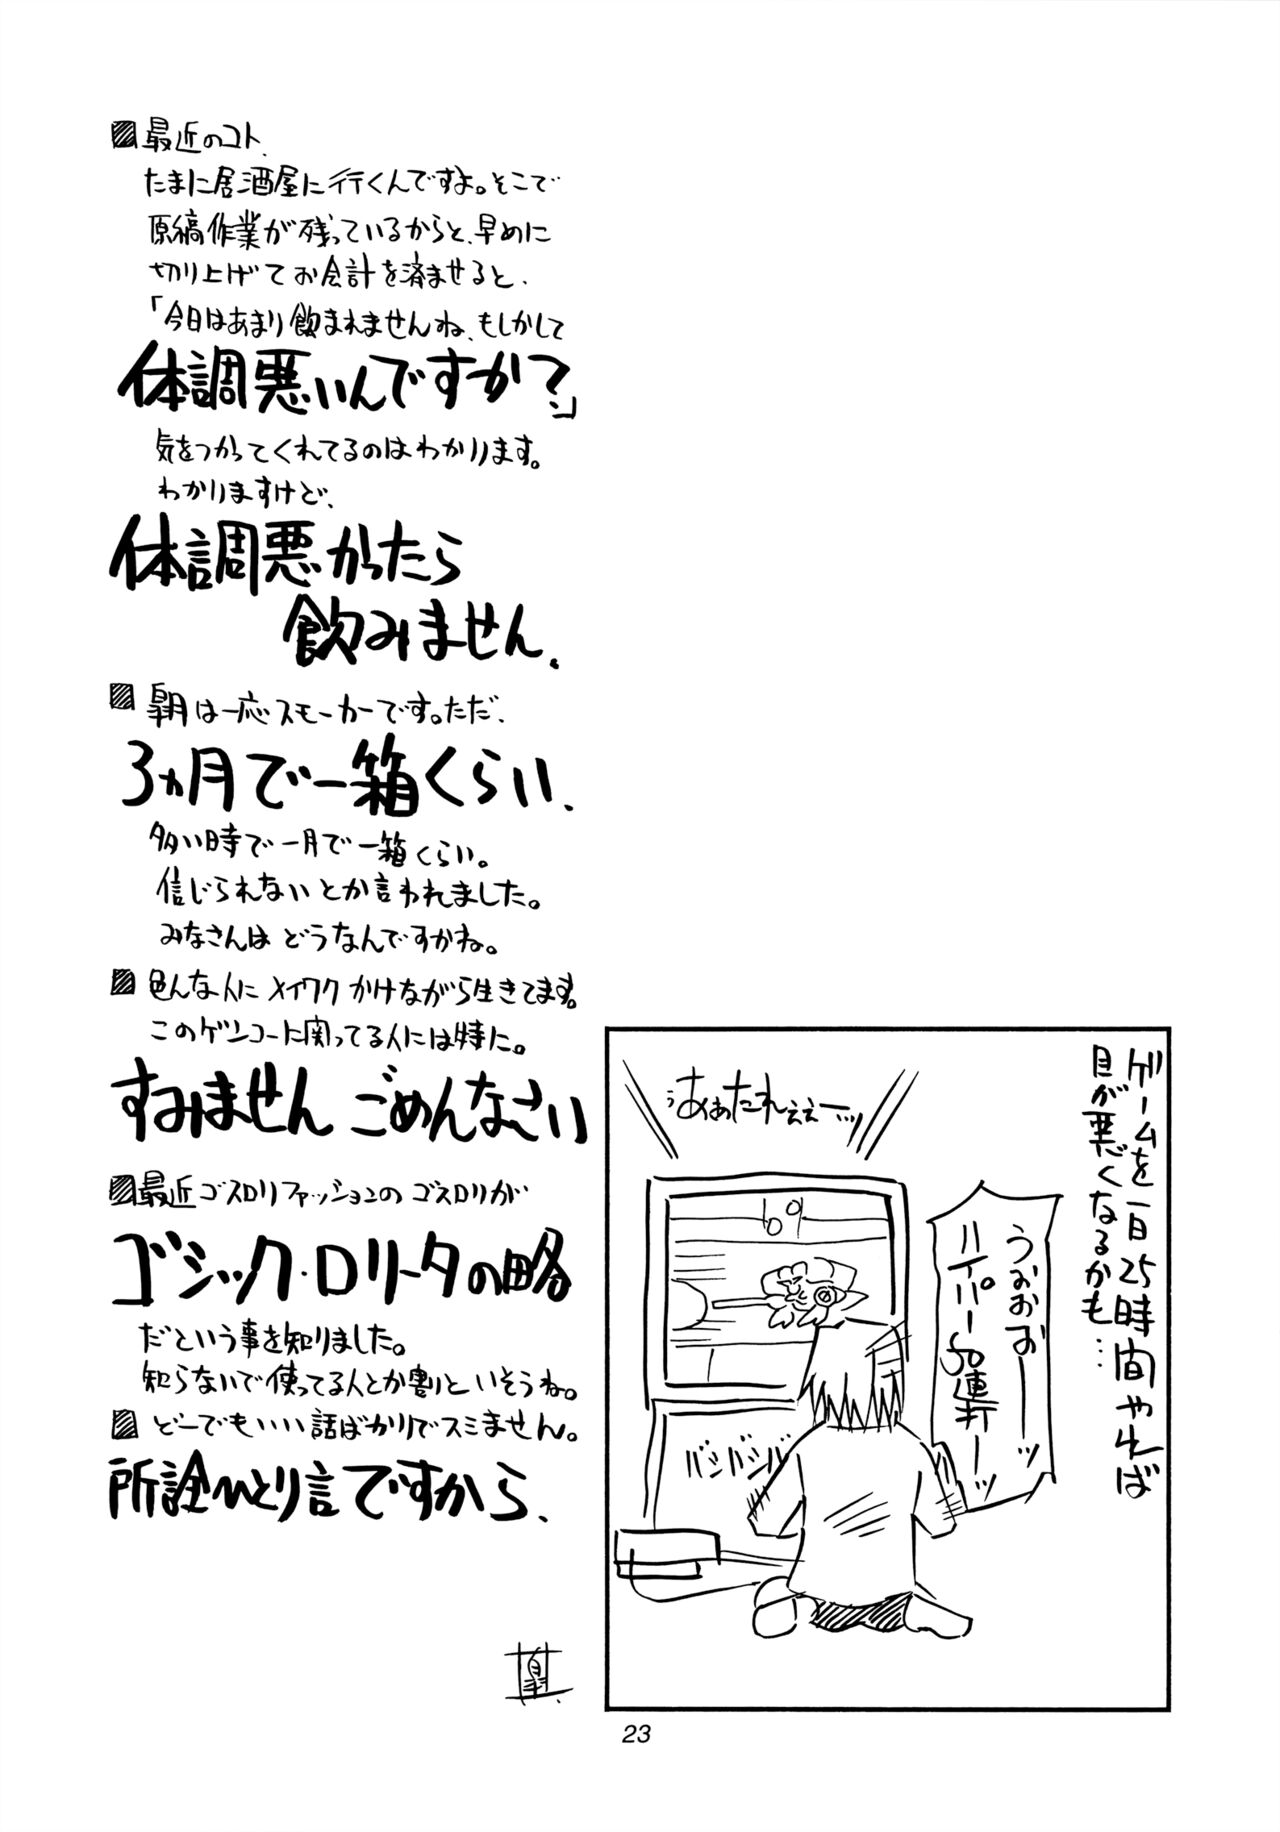 最近のコト.
たまに居酒屋に行くんですよ。そこで
原稿作業が残っているからと、早めに
切り上げてお会計を済ませると、
「今日はあまり飲まれませんね、もしかして
体調悪いんですか?」
気をつかってくれてるのはわかります。
わかりますけど、
体調悪かったら
飲みません。
朝は一応スモーカーです。ただ、
3ヵ月で一箱くらい、
多い時で一月で一箱くらい。
信じられないとか言われました。
みなさんはどうなんですかね。
色んな人にメイワクかけながら生きてます。
このゲンコーに関ってる人には特に。
すみません ごめんなさい
最近ゴスロリファッションのゴスロリが
ゴシック・ロリータの略
だという事を知りました。
知らないで使ってる人とか割といそうね。
どーでもいい話ばかりでスミません。
所詮ひとり言ですから、
ゲームを一日25時間やれば
目が悪くなるかも…
うぉおおーーッ
ハイパー50連打ーッ
うあぁたれぇぇーッ
バシバシバシ
23